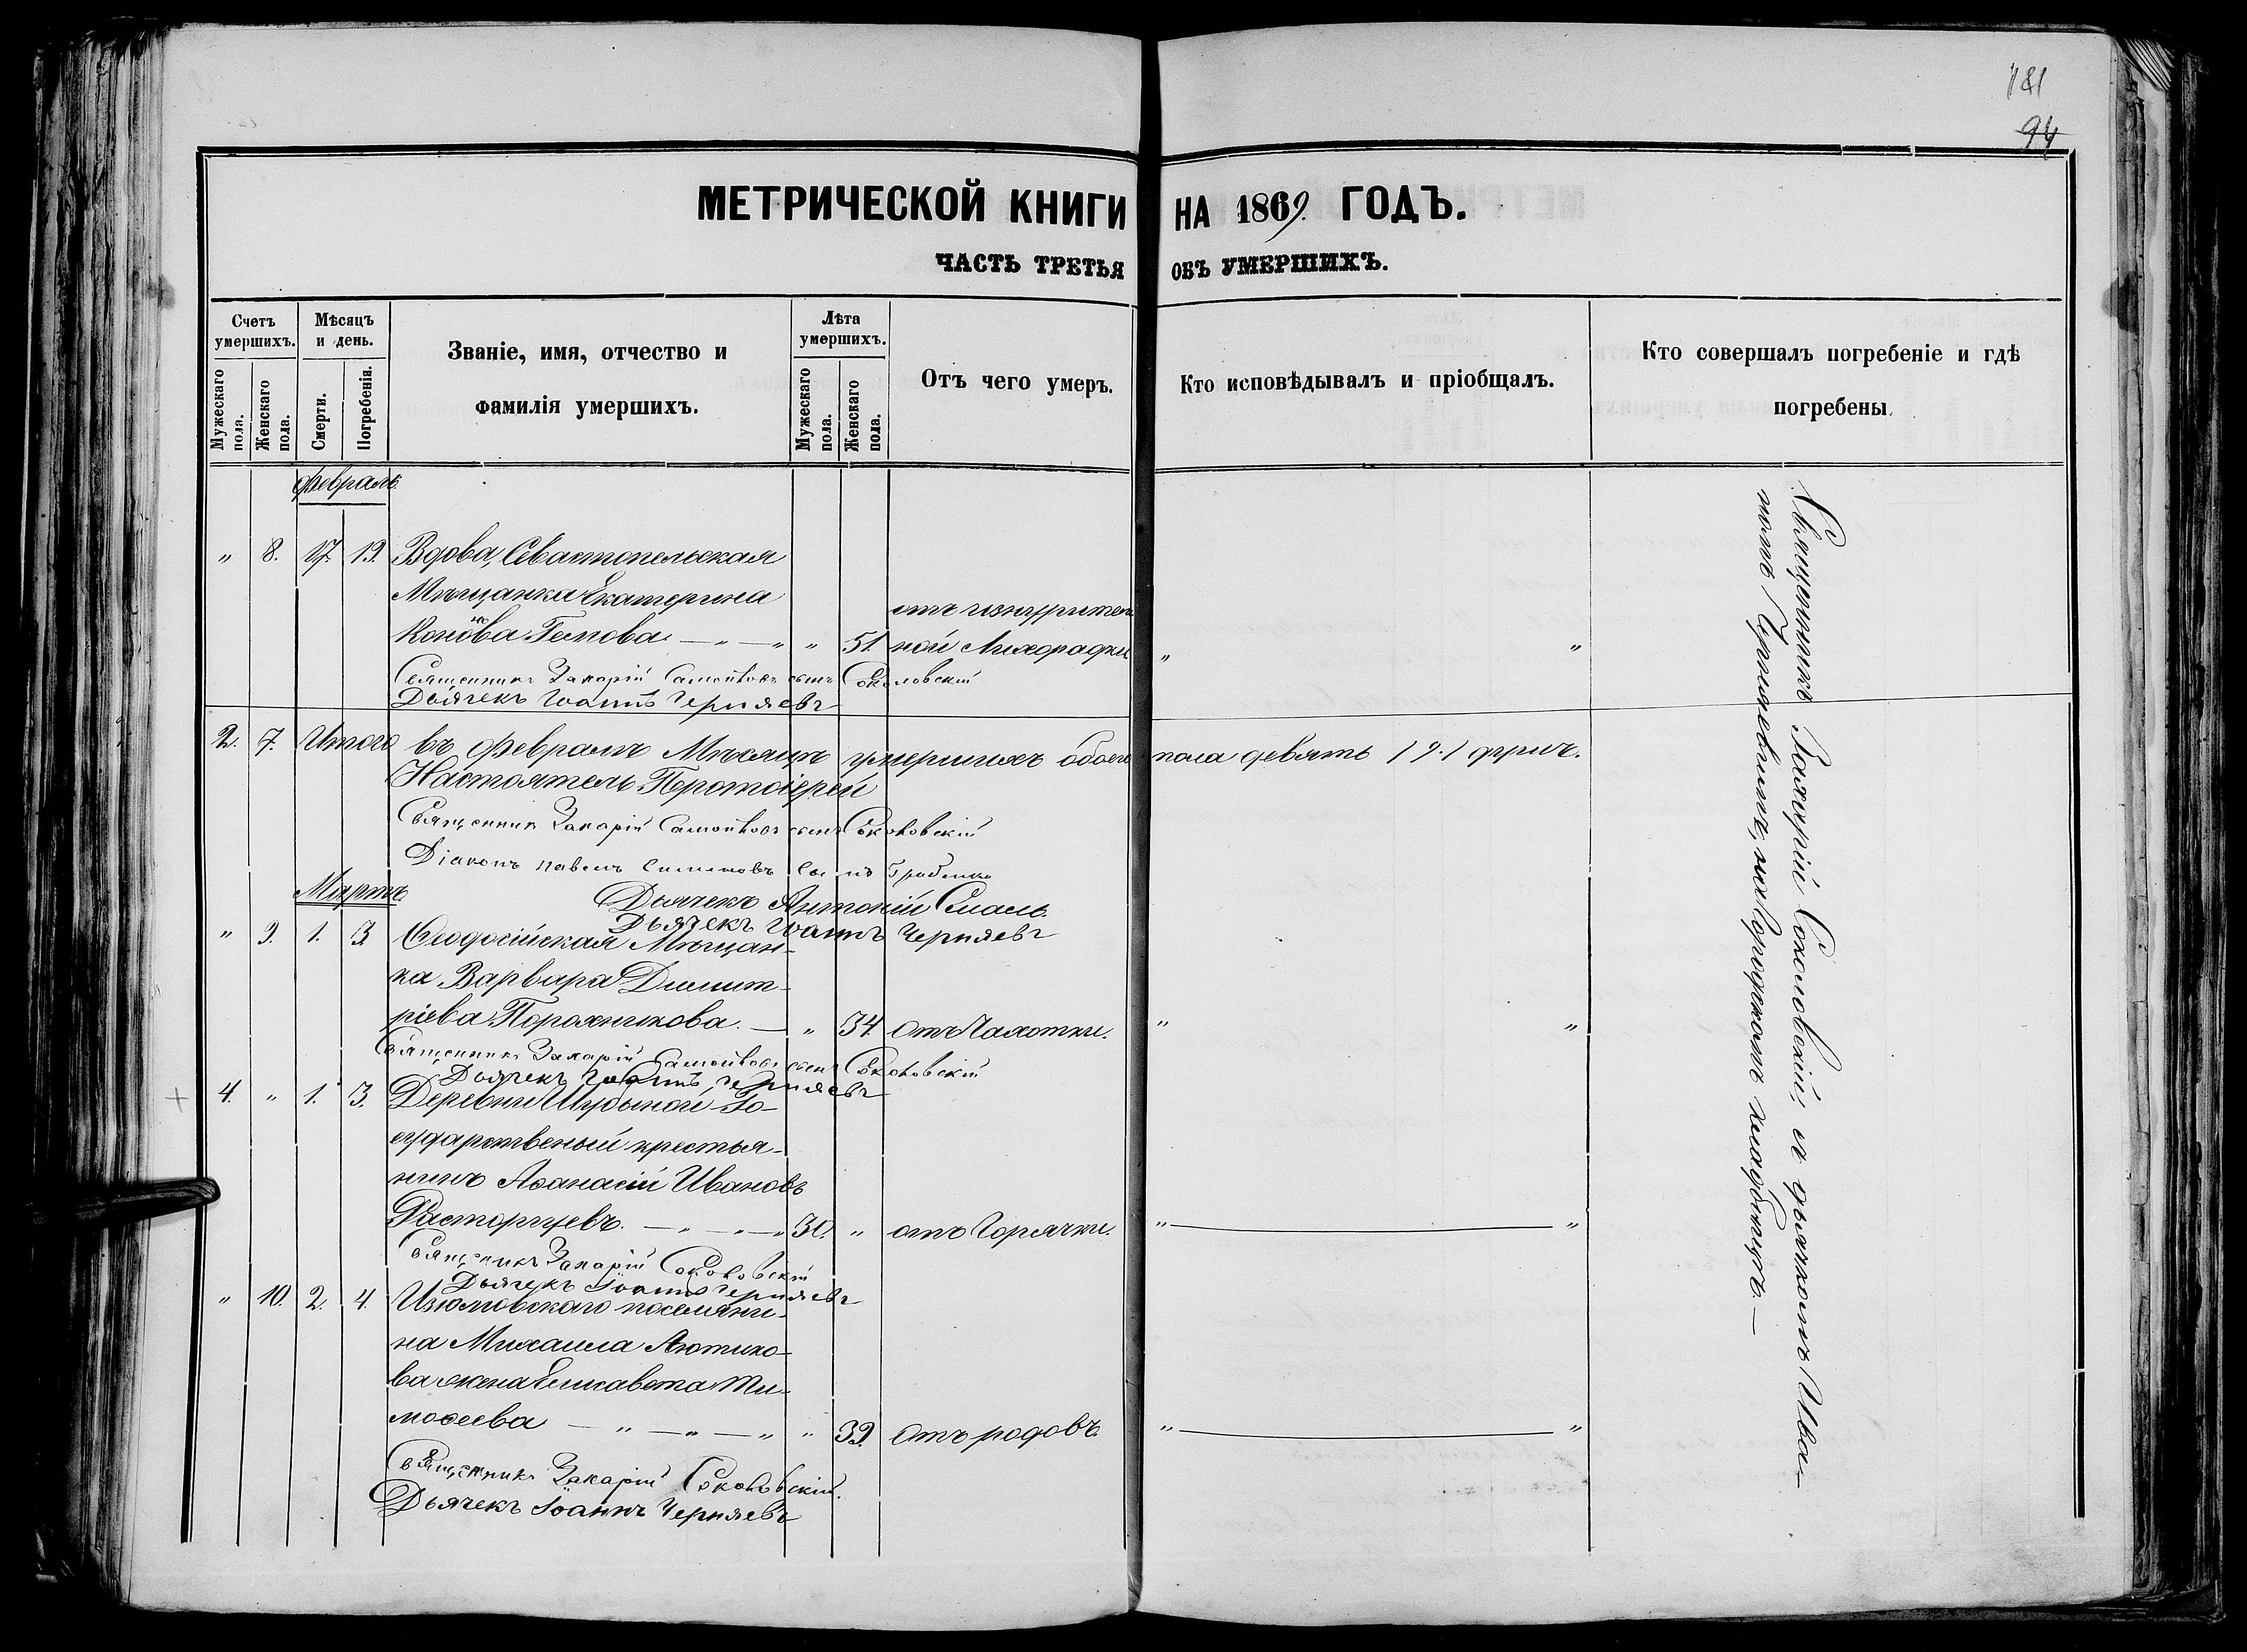 181
94
МЕТРИЧЕСКОЙ КНИГИ НА 1869. ГОДЪ.
ЧАСТЬ ТРЕТЬЯ ОБЪ УМЕРШИХЪ.
Счетъ умершихъ.
Мужескаго пола.
Женскаго пола.
Мѣсяцъ и день.
Смерти.
Погребенія.
Званіе, имя, отчество и
фамилія умершихъ.
Лѣта умершихъ.
Мужескаго пола.
Женскаго пола.
Отъ чего умеръ.
Кто исповѣдывалъ и пріобщалъ.
Кто совершалъ погребеніе и гдѣ
погребены.
Февраль
" 8. 17. 19. Вдова, Севастопельская
Мѣщанка Екатерина
отъ изнурител
" 51. ной Лихорадки " "
Священникъ Захарій Самойловъ сынъ Соколовскій
Дьячекъ Іоаннъ Черняевъ
2. 7. Итого въ Февралѣ Мѣсяцѣ умершихъ обоего пола девять /9./ душъ.
Настоятель Протоіерей
Священник Захарій Самойловъ сынъ Соколовскій
Діаконъ Павелъ сынъ
Дьячекъ Антоній
Дьячекъ Іоаннъ Черняевъ
Мартъ
" 9. 1. 3. Ѳеодосійская Мѣщан-
ка Варвара Димит-
ріева Порожникова. — " 34. отъ Чахотки. " "
Священникъ Захарій Самойловъ сынъ Соколовскій
Дьячекъ Іоаннъ Черняевъ
4. " 1. 3. Деревни Шубиной Го-
сударственый крестья-
нинъ Аѳанасій Ивановъ
Расторгуевъ. — " — " — " 30. " отъ Горячки. " — "
Священникъ Захарій Соколовскій
Дьячекъ Іоаннъ Черняевъ
" 10. 2. 4. Изюмовскаго поселяни-
на Михаила Лютико-
ва жена Елисавета Ти-
моѳеева — " — " — " " 39. Отъ родовъ. " — "
Священникъ Захарій Соколовскій.
Дьячекъ Іоаннъ Черняевъ
Священникъ Захарій Соколовскій, и дьячкомъ Ива-
номъ Черняевымъ, на Городскомъ кладбищѣ. —